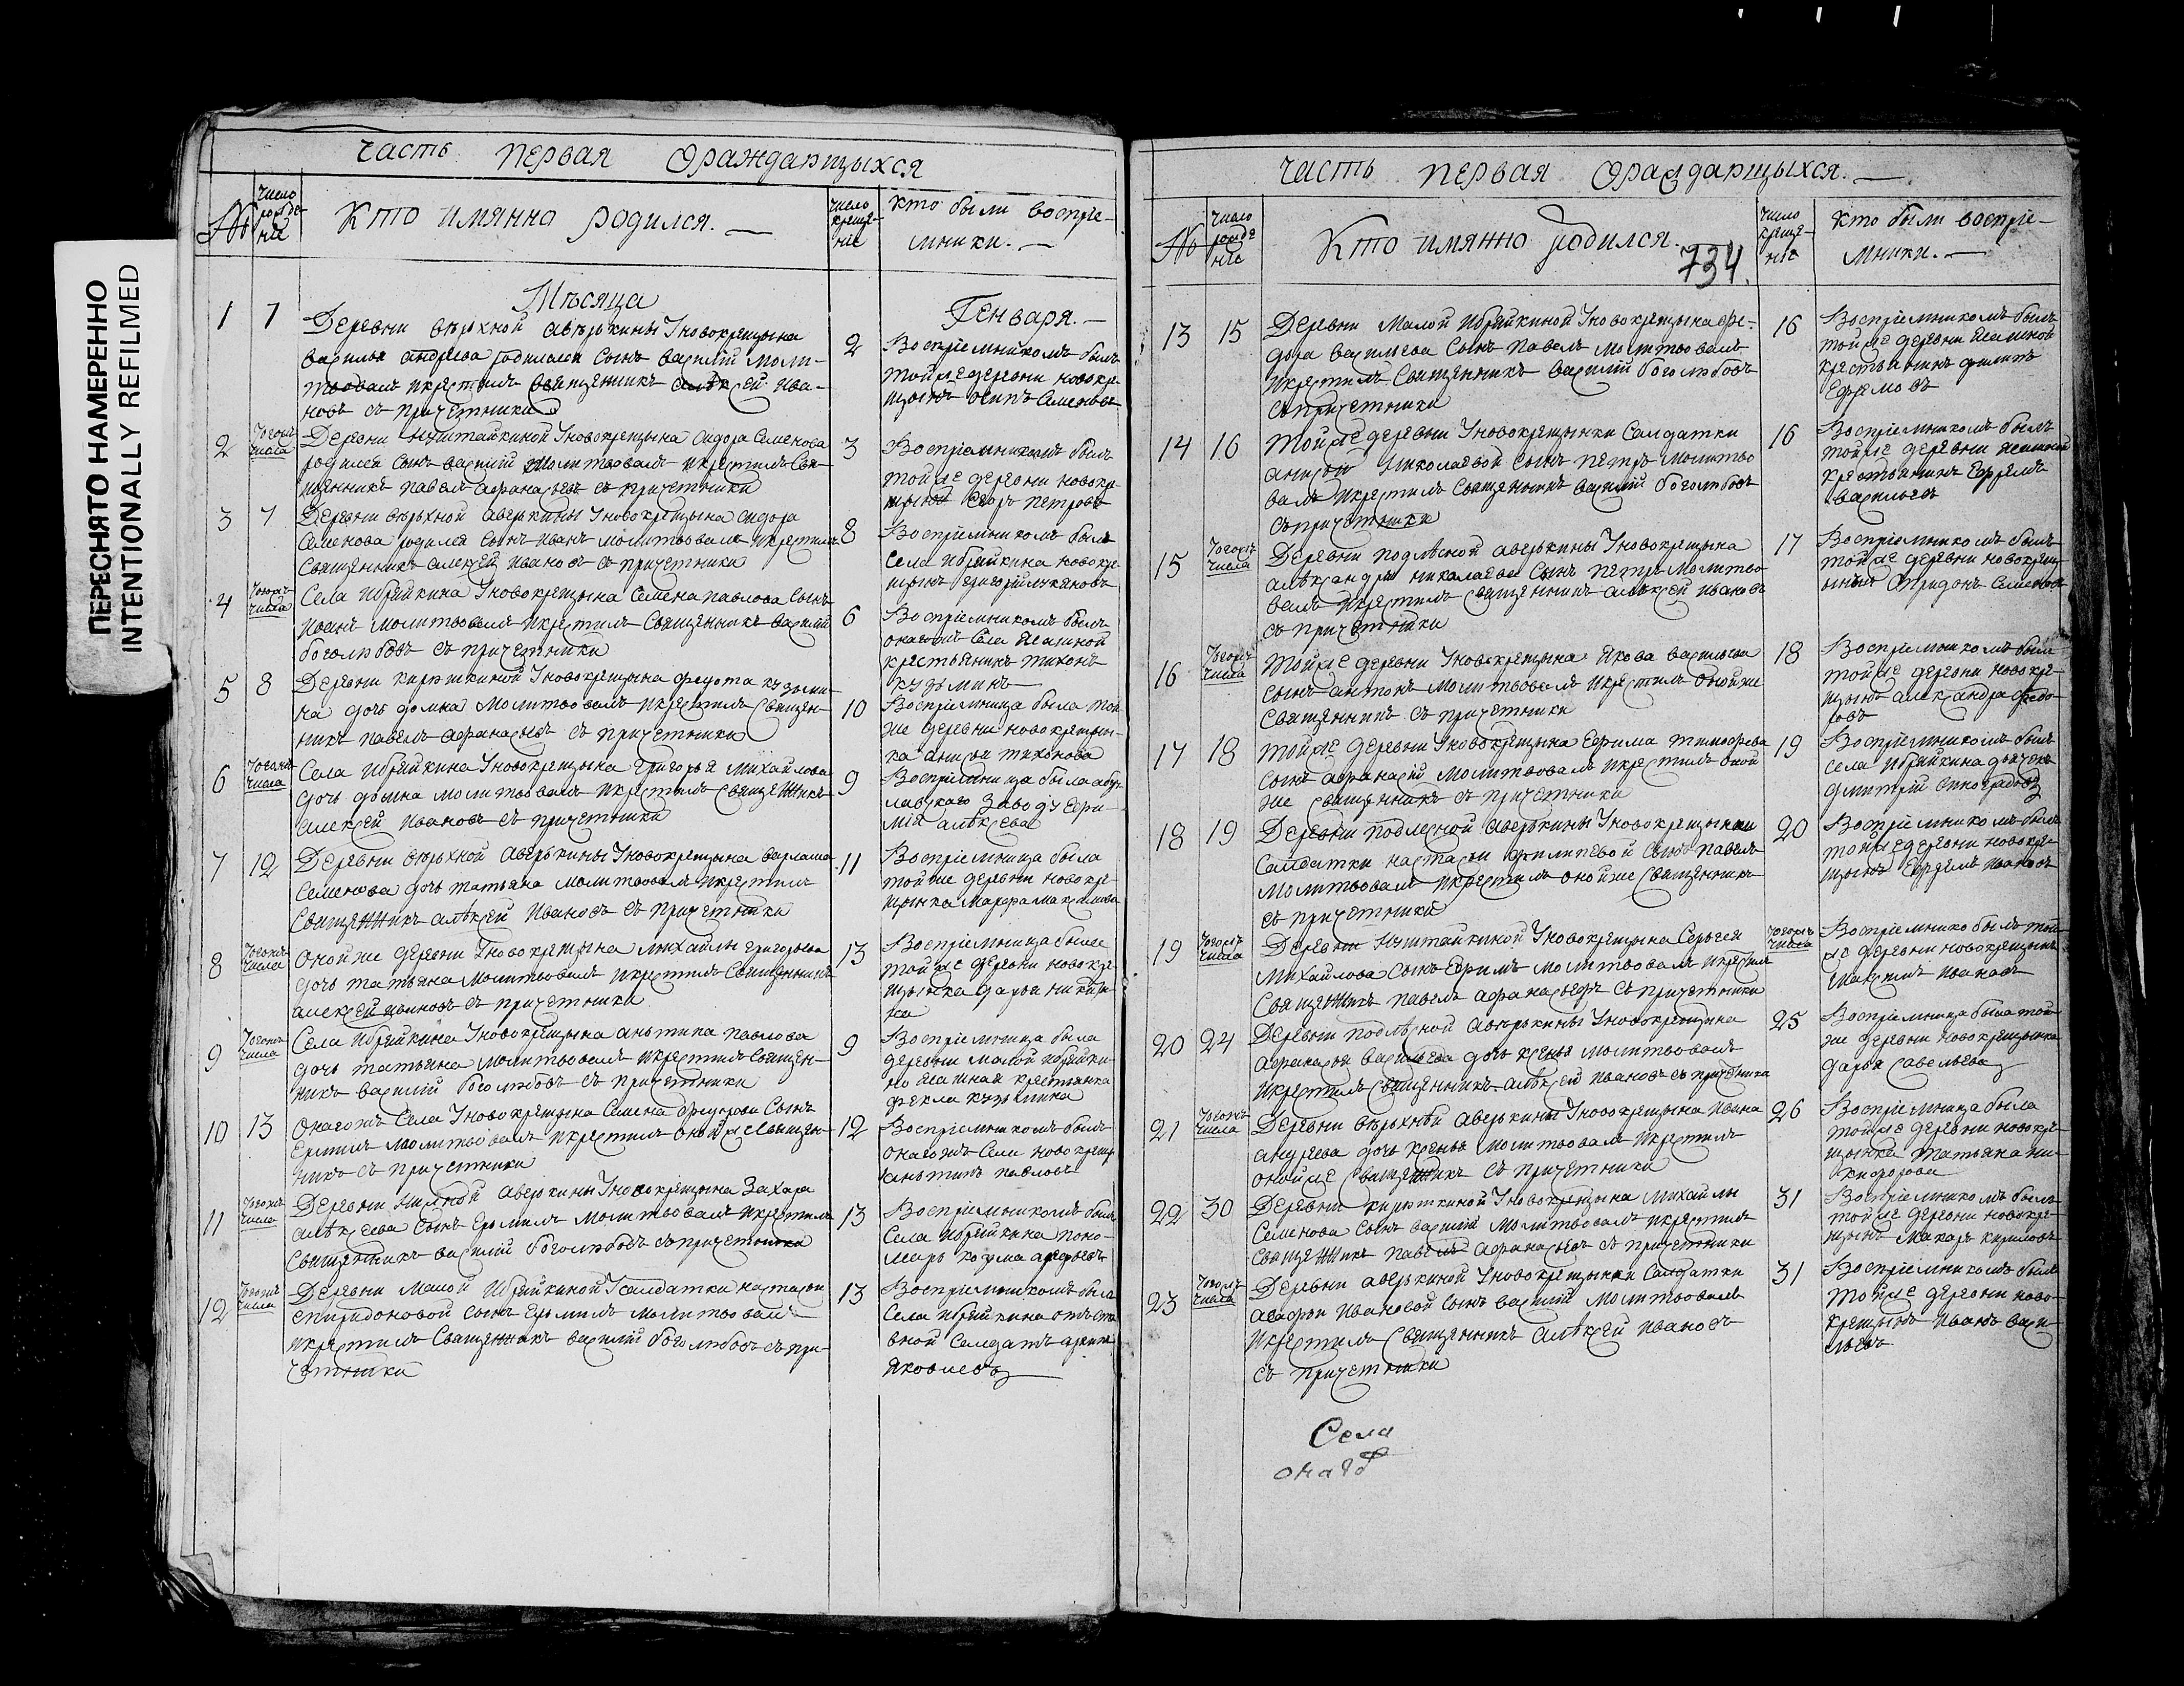 ПЕРЕСНЯТО НАМЕРЕННО
INTENTIONALLY REFILMED
Часть первая Ораждающихся
№
число рожде-ніе
Кто имянно родился.
число креще-ніе
кто были воспріе-
мники.
Мѣсяца
Генваря.
1
1
Деревни верхной аверкины Уновокрещына
василья андреева родился сынъ василий моли-
твовалъ икрестилъ священникъ алѣксей ива-
новъ съ причетники
2
Воспріемникомъ былъ
тойже деревни новокре
щынъ осипъ семеновъ
2
Тогожъ числа
Деревни Сидора Семенова
родился сынъ василий молитвовалъ икрестилъ свя-
щенникъ павелъ афанасьевъ съ причетники
3
Воспріемникомъ былъ
тойже деревни новокре
щынъ петровъ
3
7
Деревни верхной аверкины Уновокрещына сидора
Семенова родился сынъ иванъ молитвовалъ икрестилъ
Священникъ алексей ивановъ съ причетники
8
Воспріемникомъ былъ
села ибряйкина новокре
щынъ григорій
4
Тогожъ числа
Села ибряйкина Уновокрещына Семена павлова сынъ
иванъ молитвовалъ икрестилъ священникъ василий
боголюбовъ съ причетники
6
Воспріемникомъ былъ
онагожъ села ясашной
крестьянинъ тихонъ
кузьминъ
5
8
Деревни кирюшкиной Уновокрещына федота кузьми-
на дочь домна молитвовалъ икрестилъ священ-
никъ павелъ афанасьевъ съ причетники
10
Воспріемница была той
же деревни новокрещын-
ка анисья тихонова
6
Тогожъ числа
Села ибряйкина Уновокрещына григорья михайлова
дочь домна молитвовалъ икрестилъ священникъ
алексей ивановъ съ причетники
9
Воспріемница была
заводу
алѣксева
7
12
Деревни верхной аверкины Уновокрещына варлама
Семенова дочь татьяна молитвовалъ икрестилъ
священникъ алѣксей ивановъ съ причетники
11
Воспріемница была
тойже деревни новокре-
щынка марфа максимова
8
Тогожъ числа
Онойже деревни Уновокрещына михайлы григорьева
дочь татьяна молитвовалъ икрестилъ священникъ
алексей ивановъ съ причетники
13
Воспріемница была
тойже деревни новокре
щынка дарья
9
Тогожъ числа
Села ибряйкина Уновокрещына антипа павлова
дочь татьяна молитвовалъ икрестилъ священ-
никъ василий боголюбовъ съ причетники
9
Воспріемница была
деревни малой ибряйки-
но ясашная крестянка
фекла кузмина
10
13
Онагожъ села Уновокрещына Семена федорова сынъ
ермилъ молитвовалъ икрестилъ онойже священ-
никъ съ причетники
12
Воспріемникомъ былъ
онагожъ села новокрещ
антипъ павловъ
11
Тогожъ числа
Деревни нижной аверкины Уновокрещына Захара
алѣксеева сынъ ермилъ молитвовалъ икрестилъ
священникъ василий боголюбовъ съпричетники
13
Воспріемникомъ былъ
села ибряйкина поно-
марь козма
12
Тогожъ числа
Деревни малой ибряйкиной Усалдатки настасьи
спиридоновой сынъ ермилъ молитвовалъ
икрестилъ священникъ василий боголюбовъ съ при-
четники
13
Воспріемникомъ былъ
села ибряйкина отста
вной салдатъ
яковлевъ
Часть первая Ораждающихся.
№
число рожде ніе
Кто имянно родился.
734.
число креще-ніе
кто были воспріе-
мники.
13
15
Деревни малой ибряйкиной Уновокрещына фе-
дора васильева сынъ павелъ молитвовалъ
икрестилъ священникъ василий боголюбовъ
съпричетники
16
Воспріемникомъ былъ
тойже деревни ясашной
крестьянинъ филипъ
Ефремовъ
14
16
Тойже деревни Уновокрещынки салдатки
анисьи николаевой сынъ петръ молитво
валъ икрестилъ священникъ василий боголюбовъ
съпричетники
16
Воспріемникомъ былъ
тойже деревни ясашной
крестьянинъ Ефремъ
васильевъ
15
Тогожъ числа
Деревни подлѣсной аверкины Уновокрещына
алѣксандры николаева сынъ петръ молитво-
валъ икрестилъ священникъ алѣксей ивановъ
съ причетники
17
Воспріемникомъ былъ
тойже деревни новокрещ
ынъ спиридонъ Семеновъ
16
Тогожъ числа
Тойже деревни Уновокрещына якова васильева
сынъ антонъ молитвовалъ икрестилъ онойже
священникъ съ причетники
18
Воспріемникомъ былъ
тойже деревни новокре-
щынъ алѣксандра федо-
ровъ
17
18
Тойже деревни Уновокрещына Ефима тимофеева
сынъ афанасей молитвовалъ икрестилъ оной
же священникъ съ причетники
19
Воспріемникомъ былъ
села ибряйкина дьячокъ
дмитрій виноградовъ
18
19
Деревни подлесной аверкины Уновокрещынки
салдатки настасьи филипевой сынъ павелъ
молитвовалъ икрестилъ онойже священникъ
съ причетники
20
Воспріемникомъ былъ
тойже деревни новокре-
щынъ Ефремъ ивановъ
19
Тогожъ числа
Деревни Уновокрещына Сергея
Михайлова сынъ Ефимъ молитвовалъ икрестилъ
священникъ павелъ афанасьевъ съ причетники
Тогожъ числа
Воспріемнико былъ той
же деревни новокрещынъ
максимъ ивановъ
20
24
Деревни подлѣсной аверкины Уновокрещына
афанасья васильева дочь ксенья молитвовалъ
икрестилъ священникъ алѣксей ивановъ съ причетники
25
Воспріемница была той
же деревни новокрещынка
дарья савельева
21
Тогожъ числа
Деревни верхней аверкины Уновокрещына ивана
андреева дочь ксенья молитвовалъ икрестилъ
онойже священникъ съ причетники
26
Воспріемница была
тойже деревни новокре-
щынка татьяна ни-
кифорова
22
30
Деревни кирюшкиной Уновокрещына михайлы
Семенова сынъ василий молитвовалъ икрестилъ
священникъ павелъ афанасьевъ съ причетники
31
Воспріемникомъ былъ
тойже деревни новокре-
щынъ макаръ кириловъ
23
Тогожъ числа
Деревни аверкиной Уновокрещынки салдатки
агафьи ивановой сынъ василий молитвовалъ
икрестилъ священникъ алѣксей ивановъ
съ причетники
31
Воспріемникомъ былъ
тойже деревни ново-
крещынъ иванъ васи-
льевъ
Села